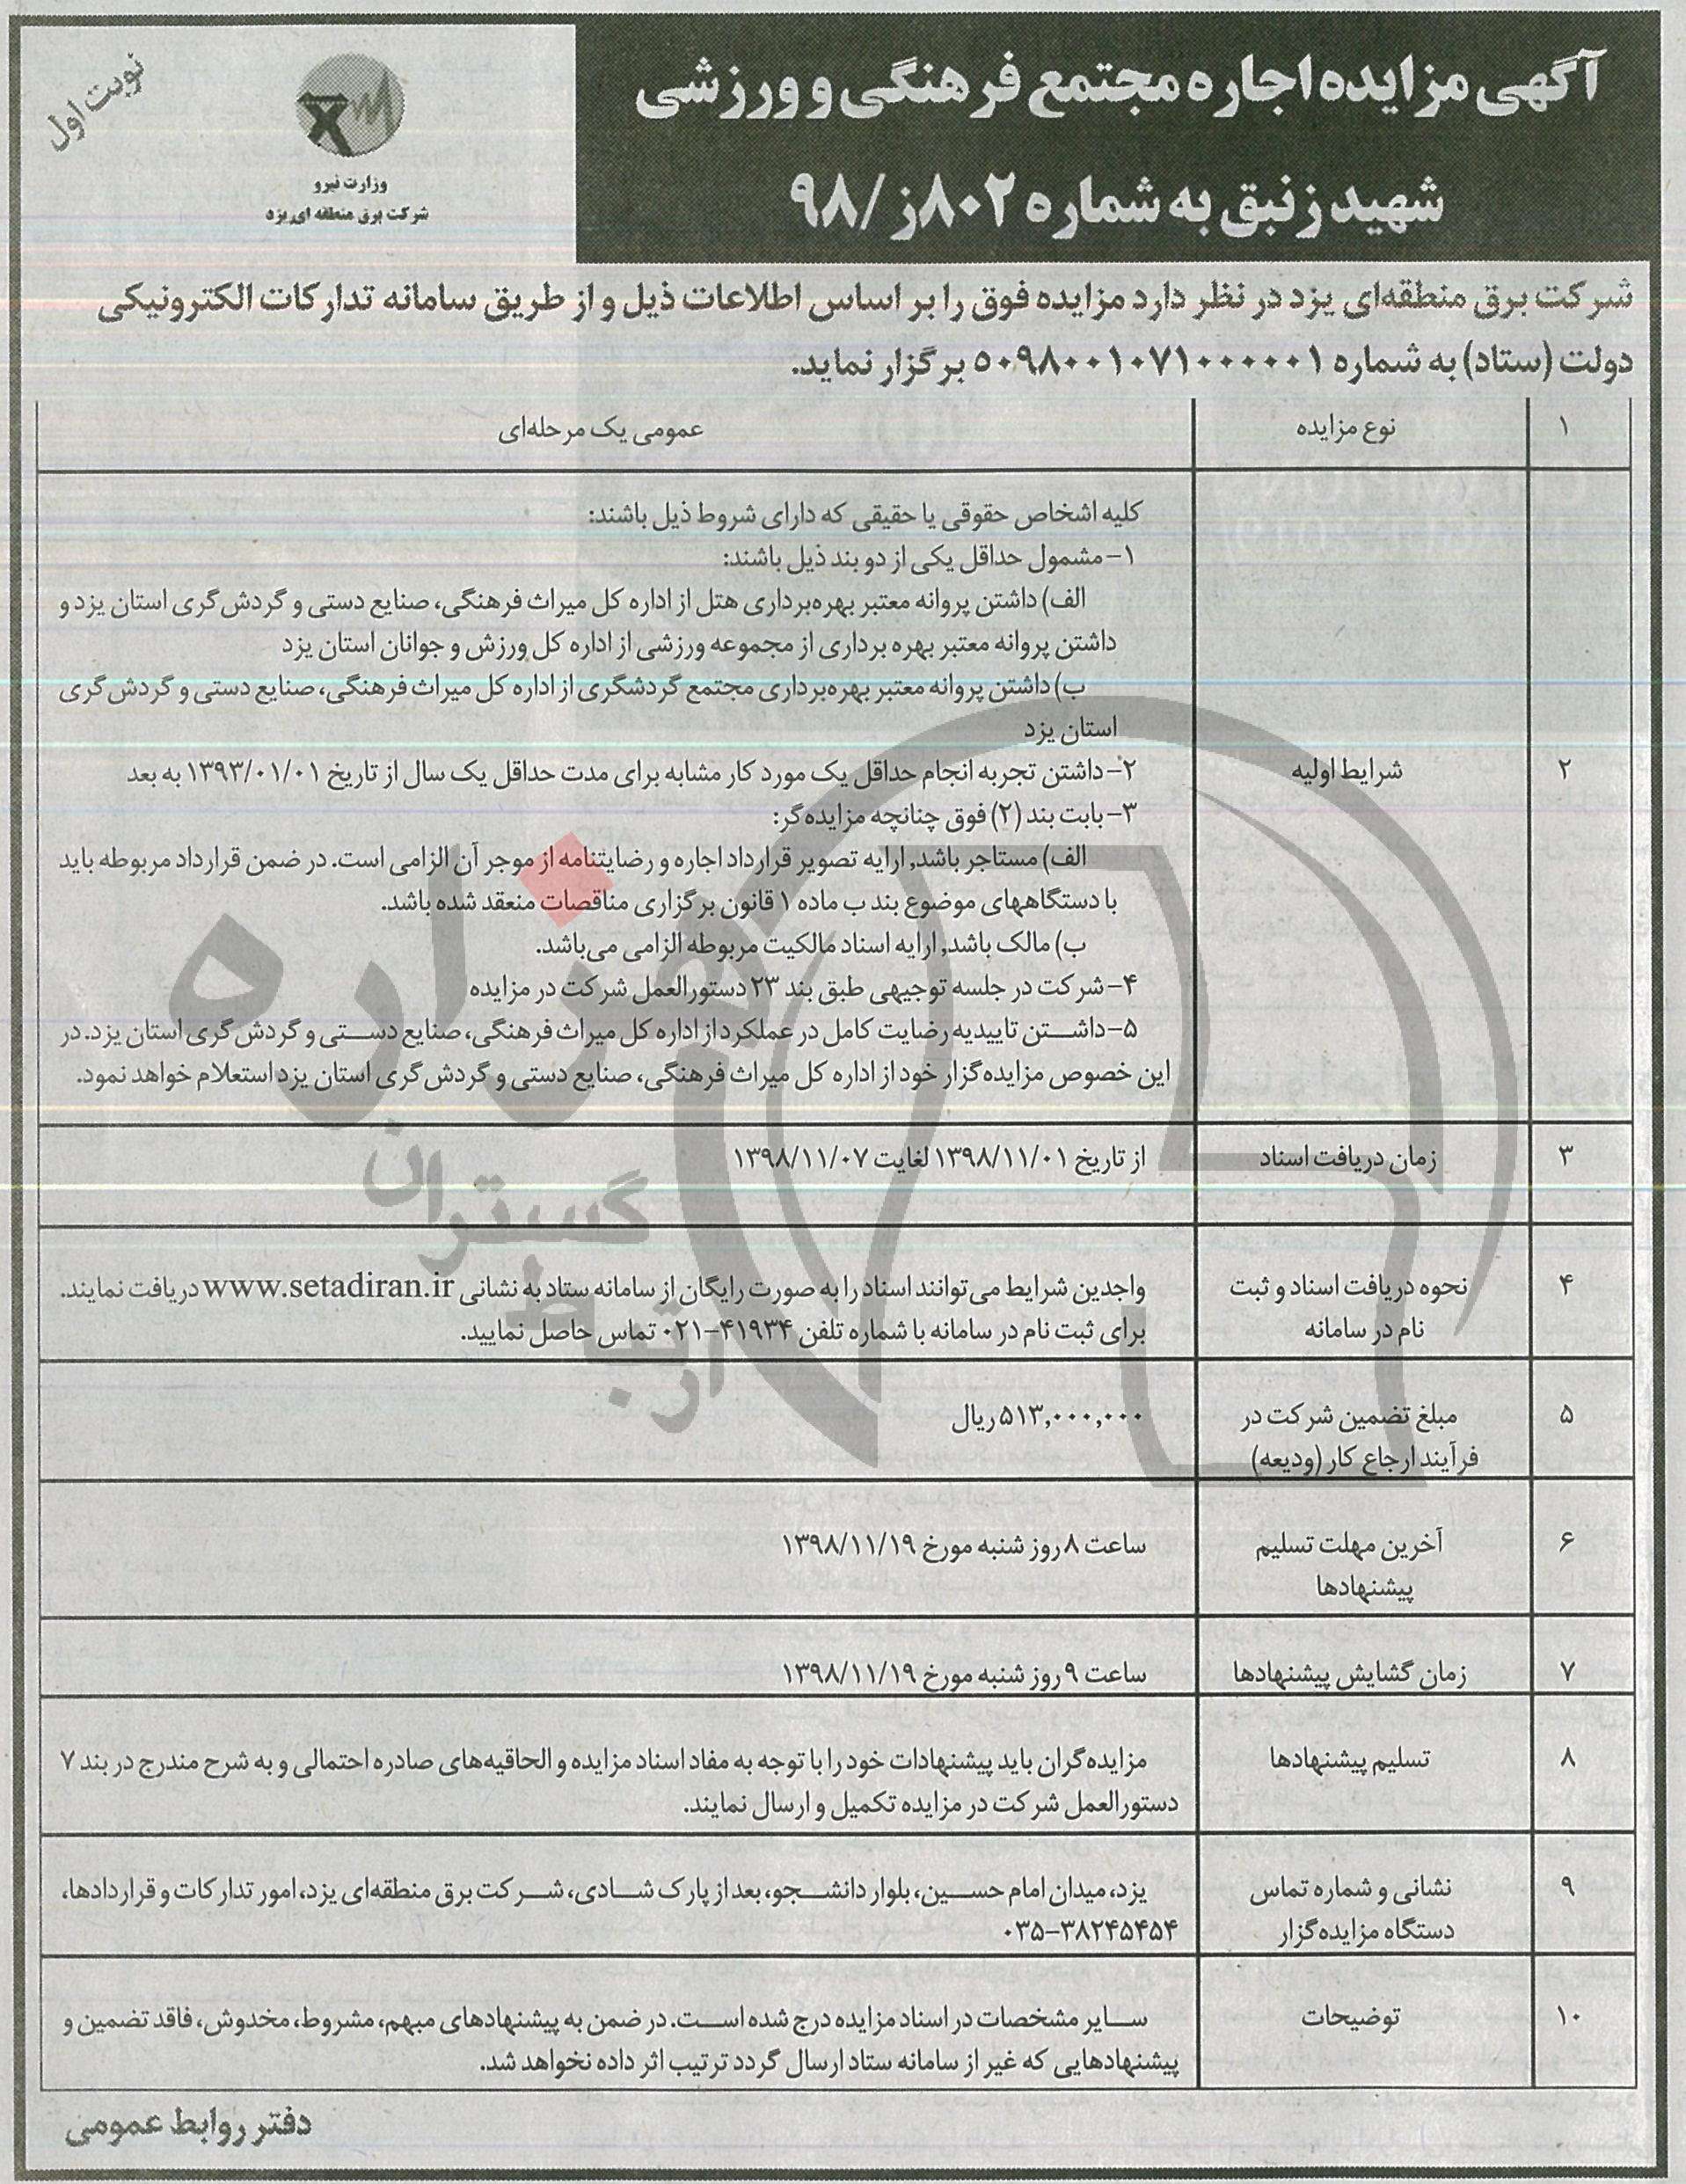 آگهی مزایده اجاره مجتمع فرهنگی و ورزشی
شهید زنبق به شماره ۸۰۲ز/۹۸
نوبت اول
وزارت نیرو
شرکت برق منطقه ای یزد
شرکت برق منطقه‌ای یزد در نظر دارد مزایده فوق را بر اساس اطلاعات ذیل و از طریق سامانه تدارکات الکترونیکی
دولت (ستاد) به شماره ۵۰۹۸۰۰۱۰۷۱۰۰۰۰۰۱ برگزار نماید.
۱ نوع مزایده عمومی یک مرحله‌ای
۲ شرایط اولیه
کلیه اشخاص حقوقی یا حقیقی که دارای شروط ذیل باشند:
۱- مشمول حداقل یکی از دو بند ذیل باشند:
الف) داشتن پروانه معتبر بهره‌برداری هتل از اداره کل میراث فرهنگی، صنایع دستی و گردش گری استان یزد و
داشتن پروانه معتبر بهره برداری از مجموعه ورزشی از اداره کل ورزش و جوانان استان یزد
ب) داشتن پروانه معتبر بهره‌برداری مجتمع گردشگری از اداره کل میراث فرهنگی، صنایع دستی و گردش گری
استان یزد
۲- داشتن تجربه انجام حداقل یک مورد کار مشابه برای مدت حداقل یک سال از تاریخ ۱۳۹۳/۰۱/۰۱ به بعد
۳- بابت بند (۲) فوق چنانچه مزایده‌گر:
الف) مستاجر باشد, ارایه تصویر قرارداد اجاره و رضایتنامه از موجر آن الزامی است. در ضمن قرارداد مربوطه باید
با دستگاههای موضوع بند ب ماده ۱ قانون برگزاری مناقصات منعقد شده باشد.
ب) مالک باشد, ارایه اسناد مالکیت مربوطه الزامی می‌باشد.
۴- شرکت در جلسه توجیهی طبق بند ۲۳ دستورالعمل شرکت در مزایده
۵- داشتن تاییدیه رضایت کامل در عملکرد از اداره کل میراث فرهنگی، صنایع دستی و گردش گری استان یزد. در
این خصوص مزایده‌گزار خود از اداره کل میراث فرهنگی، صنایع دستی و گردش گری استان یزد استعلام خواهد نمود.
۳ زمان دریافت اسناد از تاریخ ۱۳۹۸/۱۱/۰۱ لغایت ۱۳۹۸/۱۱/۰۷
۴ نحوه دریافت اسناد و ثبت
نام در سامانه
واجدین شرایط می‌توانند اسناد را به صورت رایگان از سامانه ستاد به نشانی www.setadiran.ir دریافت نمایند.
برای ثبت نام در سامانه با شماره تلفن ۴۱۹۳۴-۰۲۱ تماس حاصل نمایید.
۵ مبلغ تضمین شرکت در
فرآیند ارجاع کار (ودیعه)
۵۱۳,۰۰۰,۰۰۰ ریال
۶ آخرین مهلت تسلیم
پیشنهادها
ساعت ۸ روز شنبه مورخ ۱۳۹۸/۱۱/۱۹
۷ زمان گشایش پیشنهادها ساعت ۹ روز شنبه مورخ ۱۳۹۸/۱۱/۱۹
۸ تسلیم پیشنهادها
مزایده‌گران باید پیشنهادات خود را با توجه به مفاد اسناد مزایده و الحاقیه‌های صادره احتمالی و به شرح مندرج در بند ۷
دستورالعمل شرکت در مزایده تکمیل و ارسال نمایند.
۹ نشانی و شماره تماس
دستگاه مزایده‌گزار
یزد، میدان امام حسین، بلوار دانشجو، بعد از پارک شادی، شرکت برق منطقه‌ای یزد، امور تدارکات و قراردادها،
۰۳۵-۳۸۲۴۵۴۵۴
۱۰ توضیحات
سایر مشخصات در اسناد مزایده درج شده است. در ضمن به پیشنهادهای مبهم، مشروط، مخدوش، فاقد تضمین و
پیشنهادهایی که غیر از سامانه ستاد ارسال گردد ترتیب اثر داده نخواهد شد.
دفتر روابط عمومی
هزاره
گستران
ارتباط